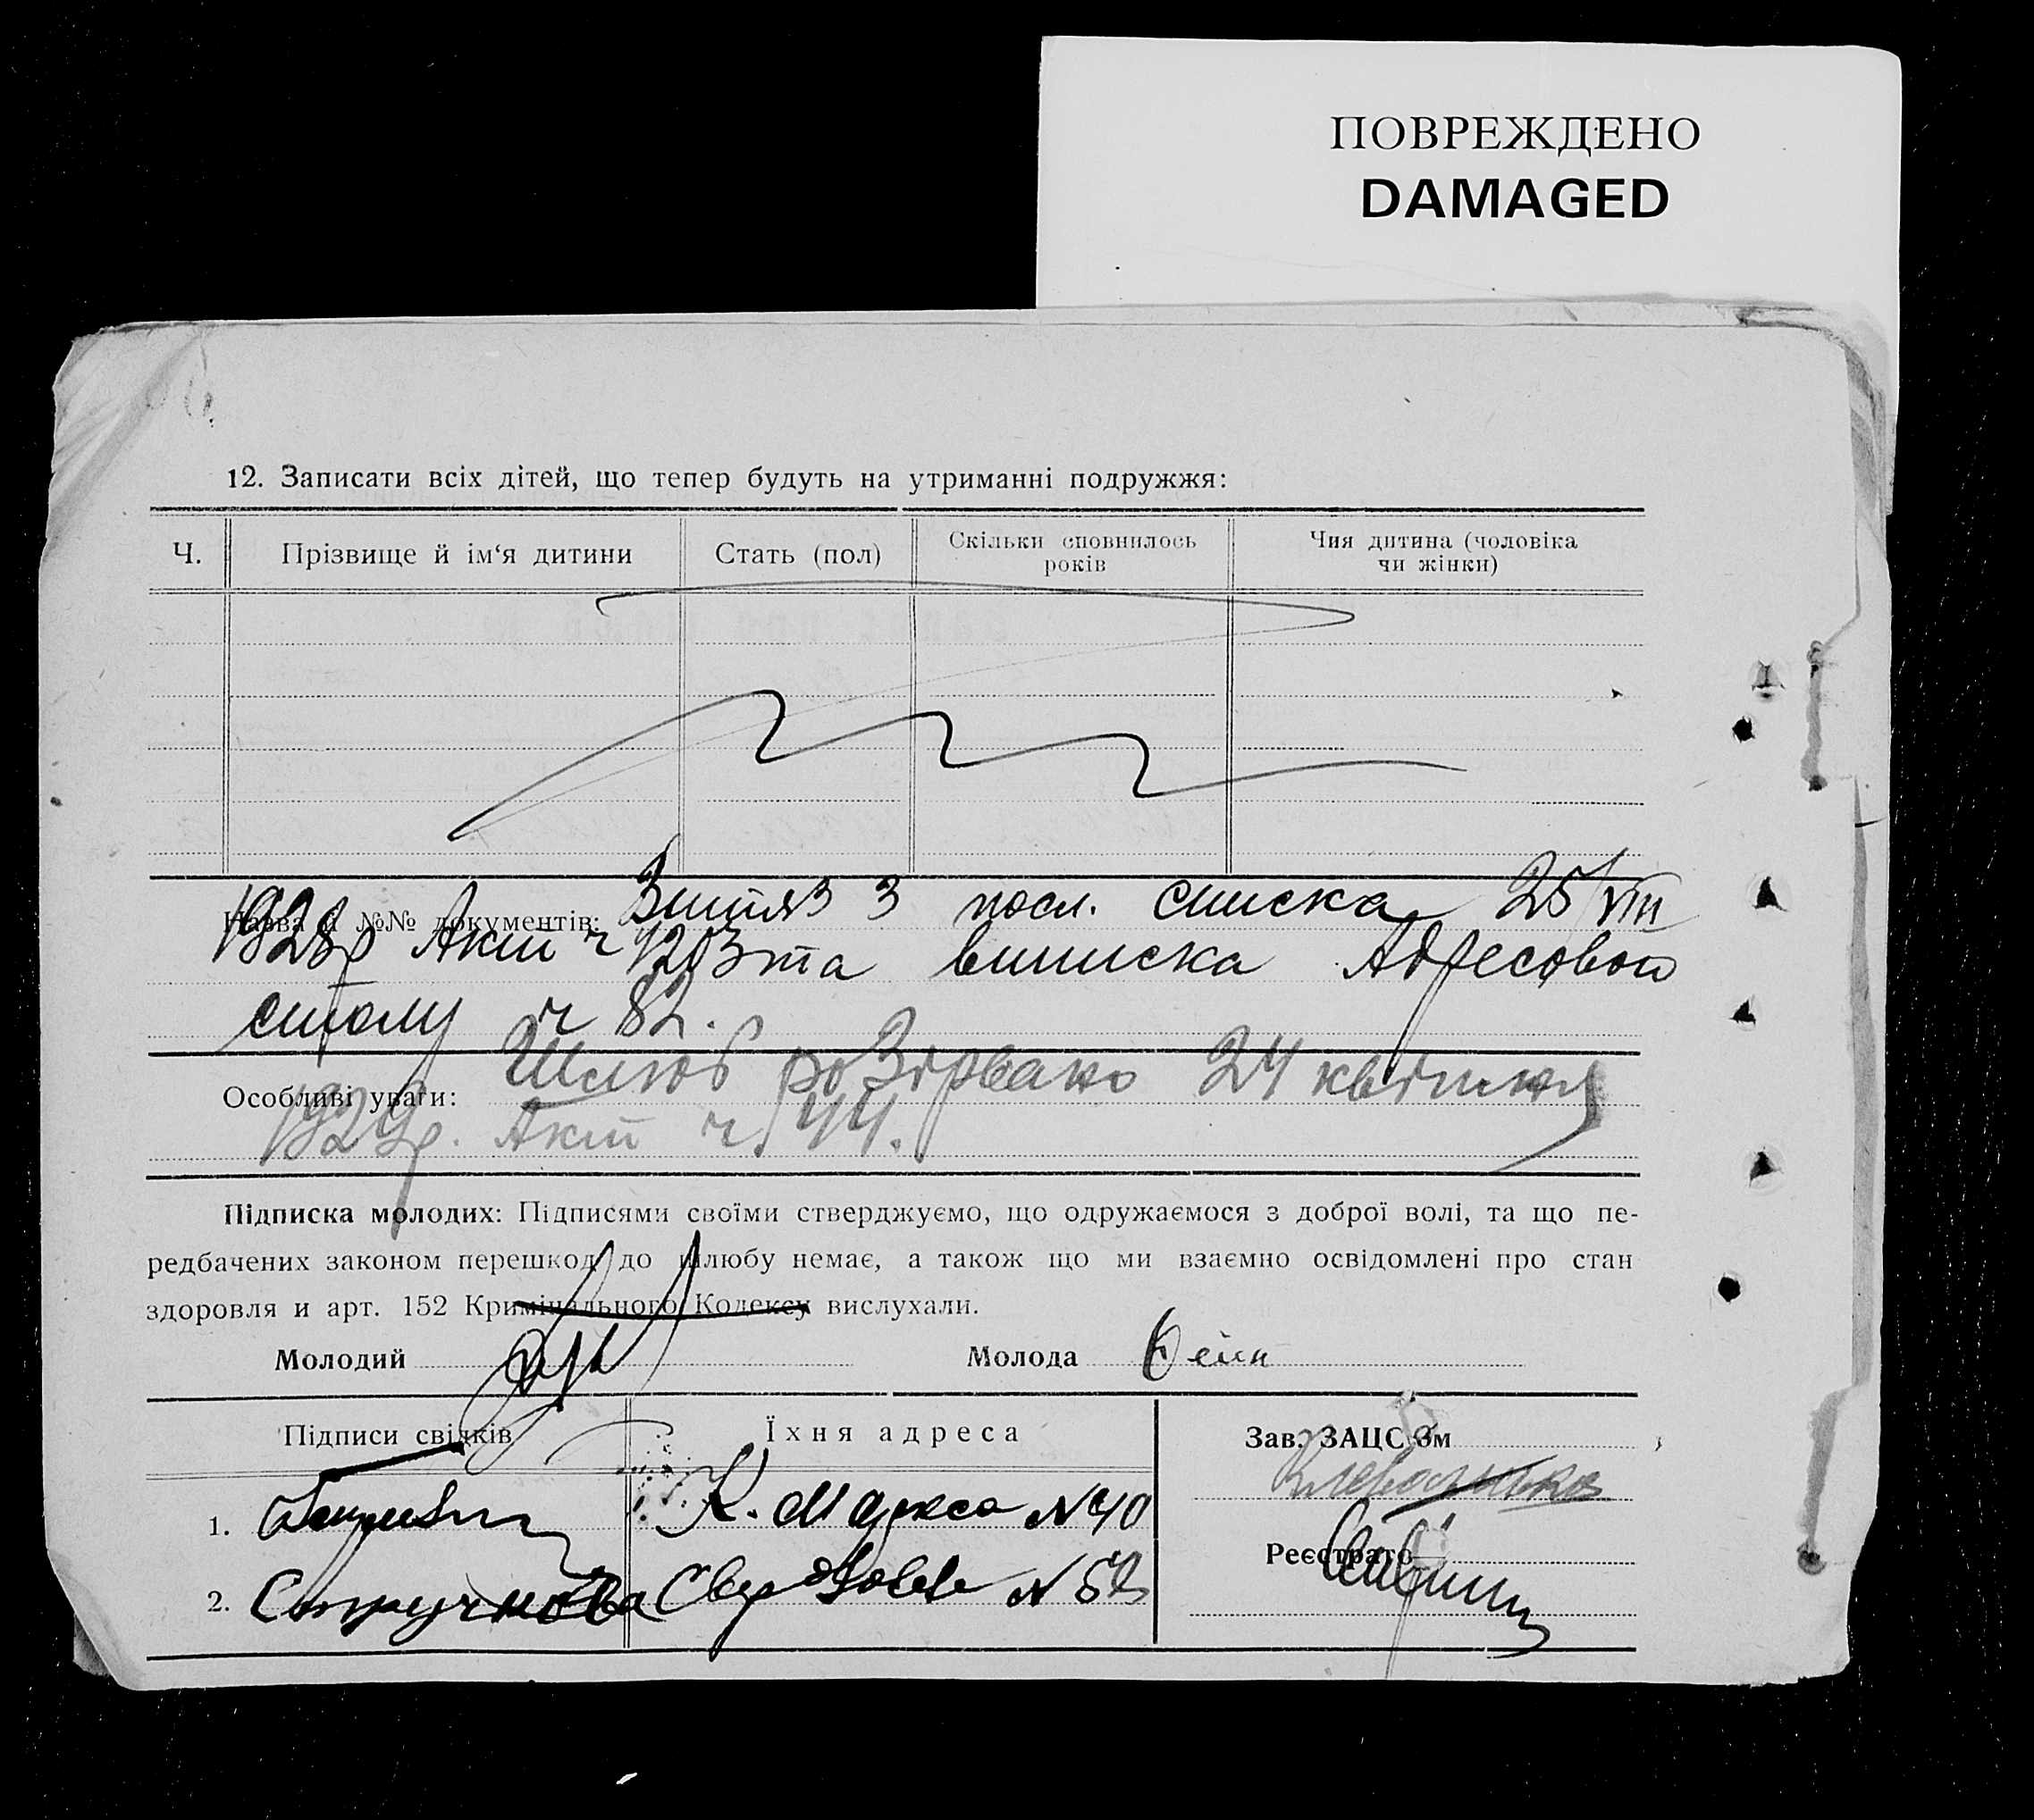 ПОВРЕЖДЕНО
DAMAGED
12. Записати всіх дітей, що тепер будуть на утриманні подружжя:
Ч.
Прізвище й ім‘я дитини
Стать (пол)
Скільки сповнилось
років
Чия дитина (чоловіка
чи жінки)
Назва й №№ документів: Витяг з посл. списка 25/VIII
1928р Акт ч 1203 та виписка Адресовой
столу ч 82.
Особливі уваги: Шлюб розірвано 24 квітня
1929р. Акт ч. 44.
Підписка молодих: Підписями своїми стверджуємо, що одружаємося з доброї волі, та що пе-
редбачених законом перешкод до шлюбу немає, а також що ми взаємно освідомлені про стан
здоровля и арт. 152 Кримінального Кодексу вислухали.
Молодий
Молода
Підписи свідків
Їхня адреса
Зав. ЗАЦС‘ом
1. К. Маркса № 40
2. Стручкова
Реєстратор